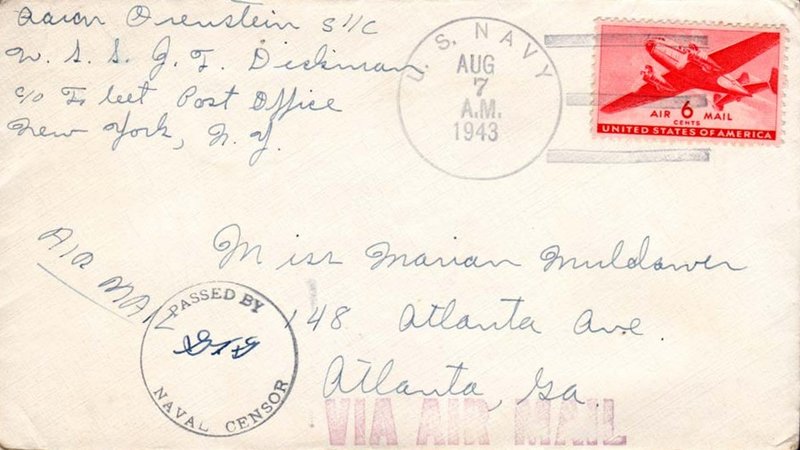 Aaron Orenstein S1/C
U. S. S. J. T. Dickman
c/o Fleet Post Office
New York, N.Y.
U. S. NAVY
AUG
7
A.M.
1943
AIR 6 MAIL
CENTS
UNITED STATES OF AMERICA
AIR MAIL
PASSED BY
NAVAL CENSOR
Miss Marian Muldawer
148 Atlanta Ave.
Atlanta, Ga
VIA AIR MAIL